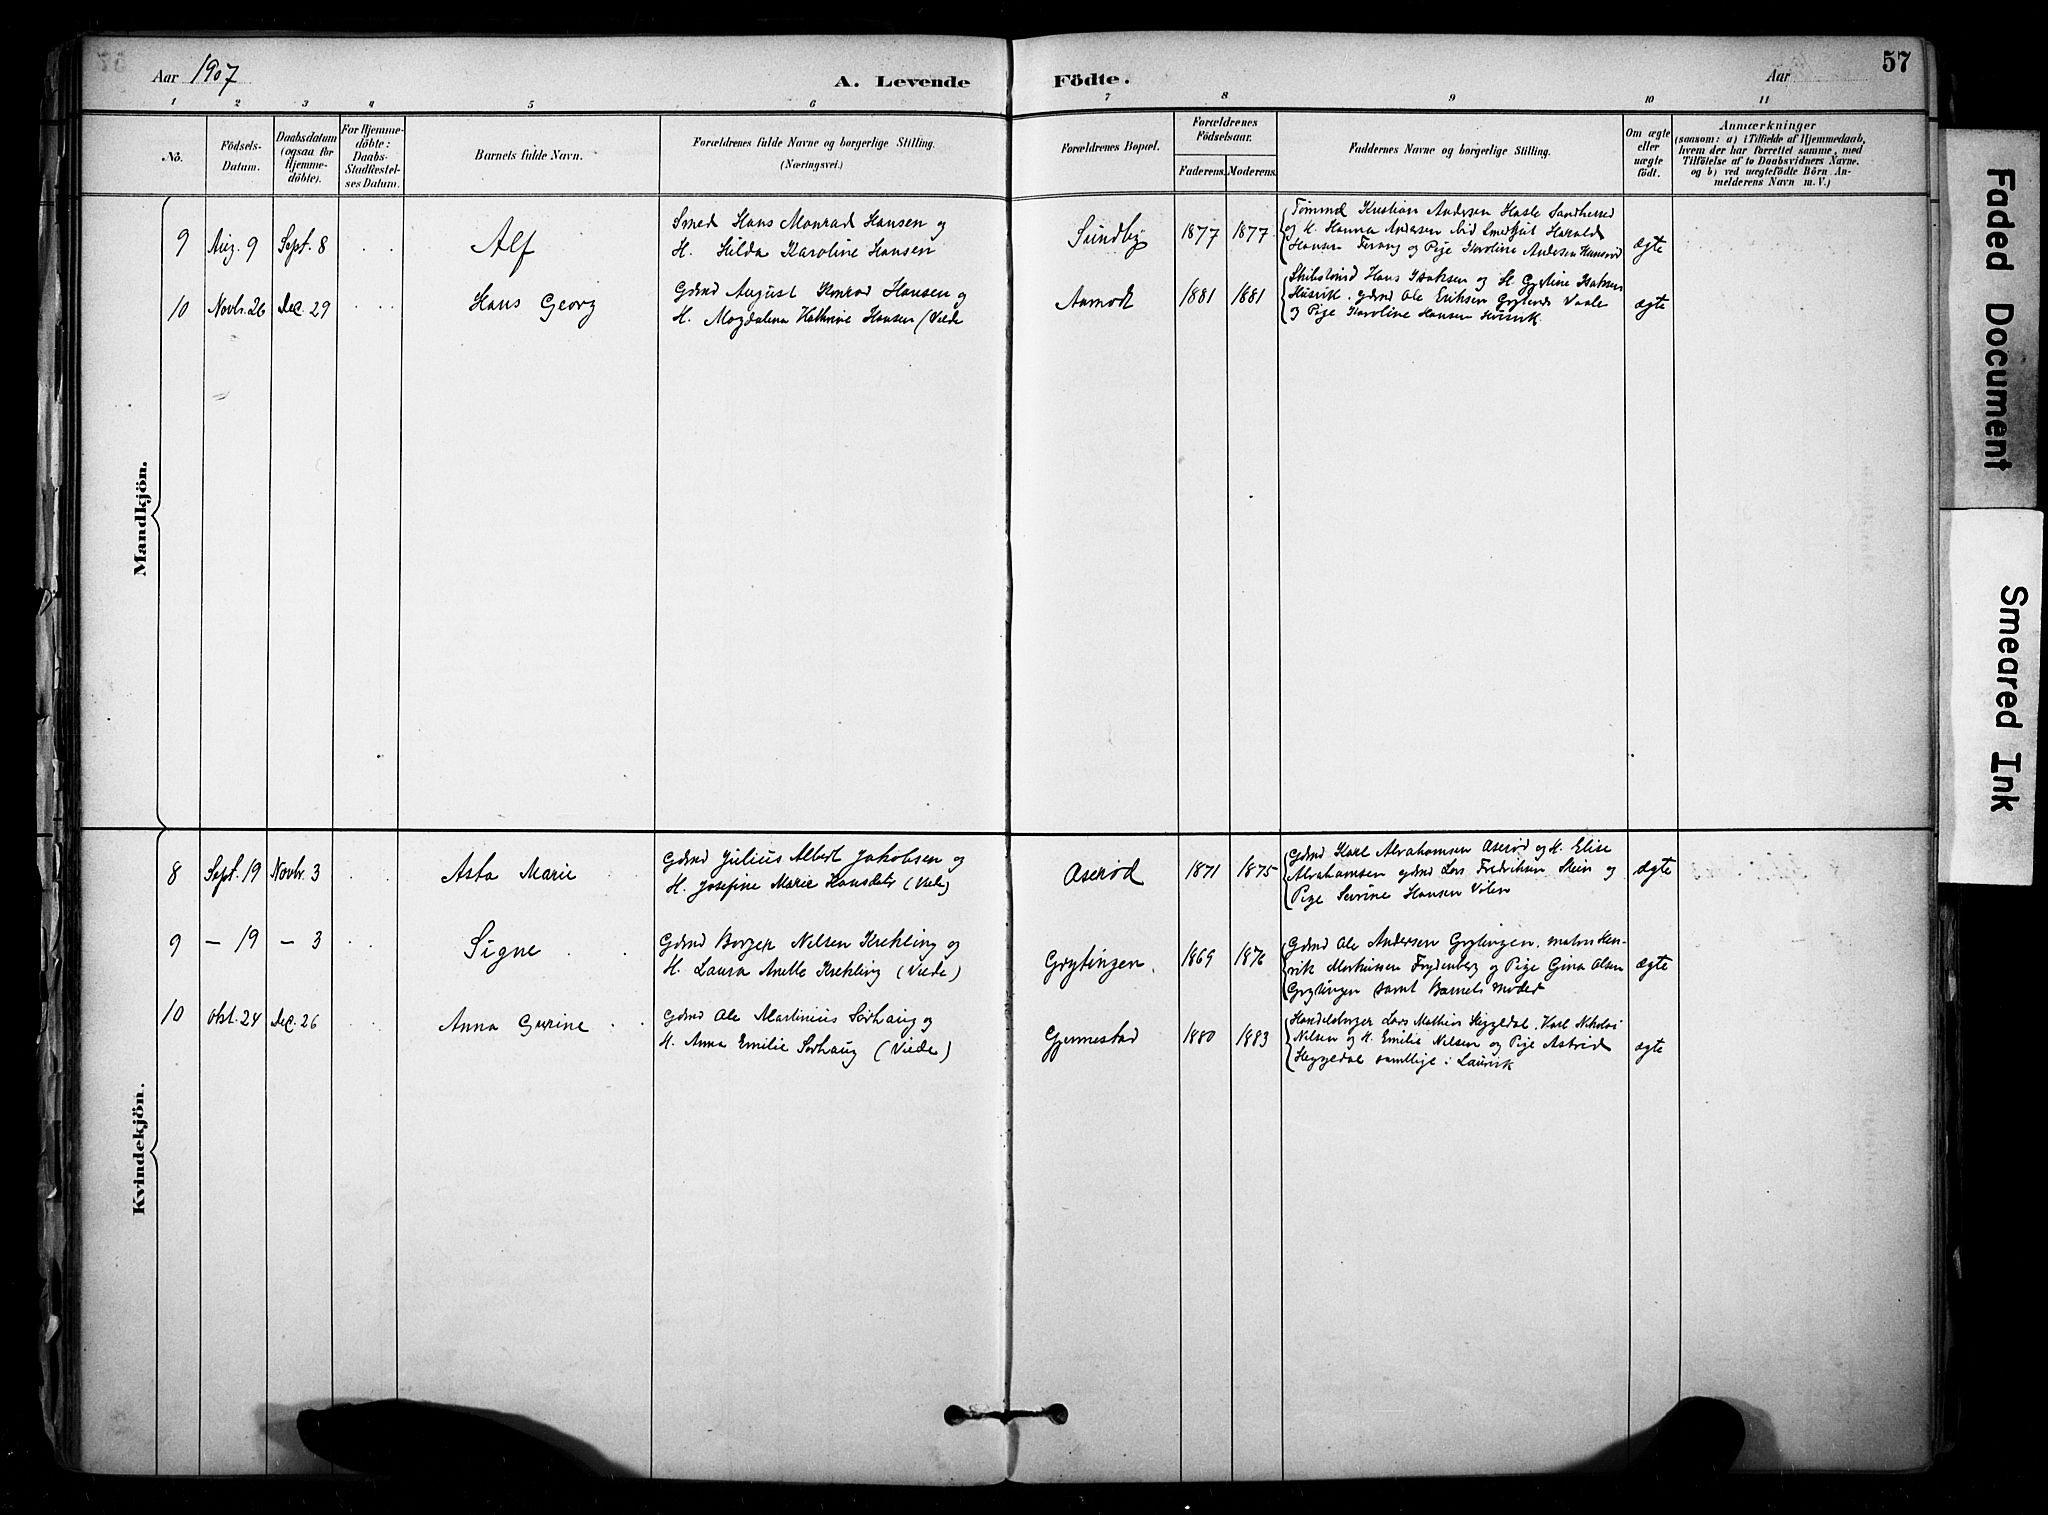 57
Aar 1907
A. Levende Födte.
Aar
1 2 3 4 5 6 7 8 9 10 11
No.
Födsels-Datum.
Daabsdatum (ogsaa for Hjemme-döbte).
For Hjemme-döbte: Daabs-Stadfestel-ses Datum.
Barnets fulde Navn.
Forældrenes fulde Navne og borgerlige Stilling.
(Næringsvei.)
Forældrenes Bopæl.
Forældrenes Födselsaar.
Faderens. Moderens.
Faddernes Navne og borgerlige Stilling.
Om ægte eller uægte födt.
Anmærkninger
(saasom: a) i Tilfælde af Hjemmedaab,
hvem der har forrettet samme, med
Tilföielse af to Daabsvidners Navne.
og b) ved uægtefödte Börn An-
melderens Navn m. V.)
Mandkjön.
9 Aug. 9 Sept. 8 Alf
Smed Hans Monrad Hansen og
H. Hilda Karoline Hansen
Sundby 1877 1877
Tømmd Kristian Andersen Hasle Sandherred
og H. Hanna Andersen ibid Harald
Hansen og Pige Karoline Andersen
ægte
10 Novbr. 26 Dec. 29 Hans Georg
Gdmd August Konrad Hansen og
H. Magdalena Kathrine Hansen (Viede
Aamodt 1881 1881
Skibstømd Hans Isaksen og H. Isaksen
Husvik, gdmd Ole Eriksen Vaale
og Pige Karoline Hansen Husvik.
ægte
Kvindekjön.
8 Sept. 19 Novbr. 3 Asta Marie
Gdmd Julius Albert Jakobsen og
H. Josefine Marie Hansdatr (Viede)
Aserød 1871 1875
Gdmd Karl Abrahamsen Aserød og H. Elise
Abrahamsen gdmd Lars Fredriksen Stein og
Pige Severine Hansen
ægte
9 — 19 — 3 Signe
Gdmd Borger Nilsen Krekling og
H. Laura Anette Krekling (Viede)
Grytingen. 1869 1876
Gdmd Ole Andersen Grytingen, matros Hen-
rik Markussen Frydenberg og Pige Gina Olsen
Grytingen samt Barnets Moder
ægte
10 Okt. 24 Dec. 26 Anna Gurine
Gdmd Ole Martinius Sørhaug og
H. Anna Emilie Sørhaug (Viede)
Gjennestad 1880 1883
Handelsborger Lars Mathias Heggedal, Karl Nikolai
Nilsen og H. Emilie Nilsen og Pige Astrid
Heggedal samtlige i Laurvik
ægte
Faded Document
Smeared Ink